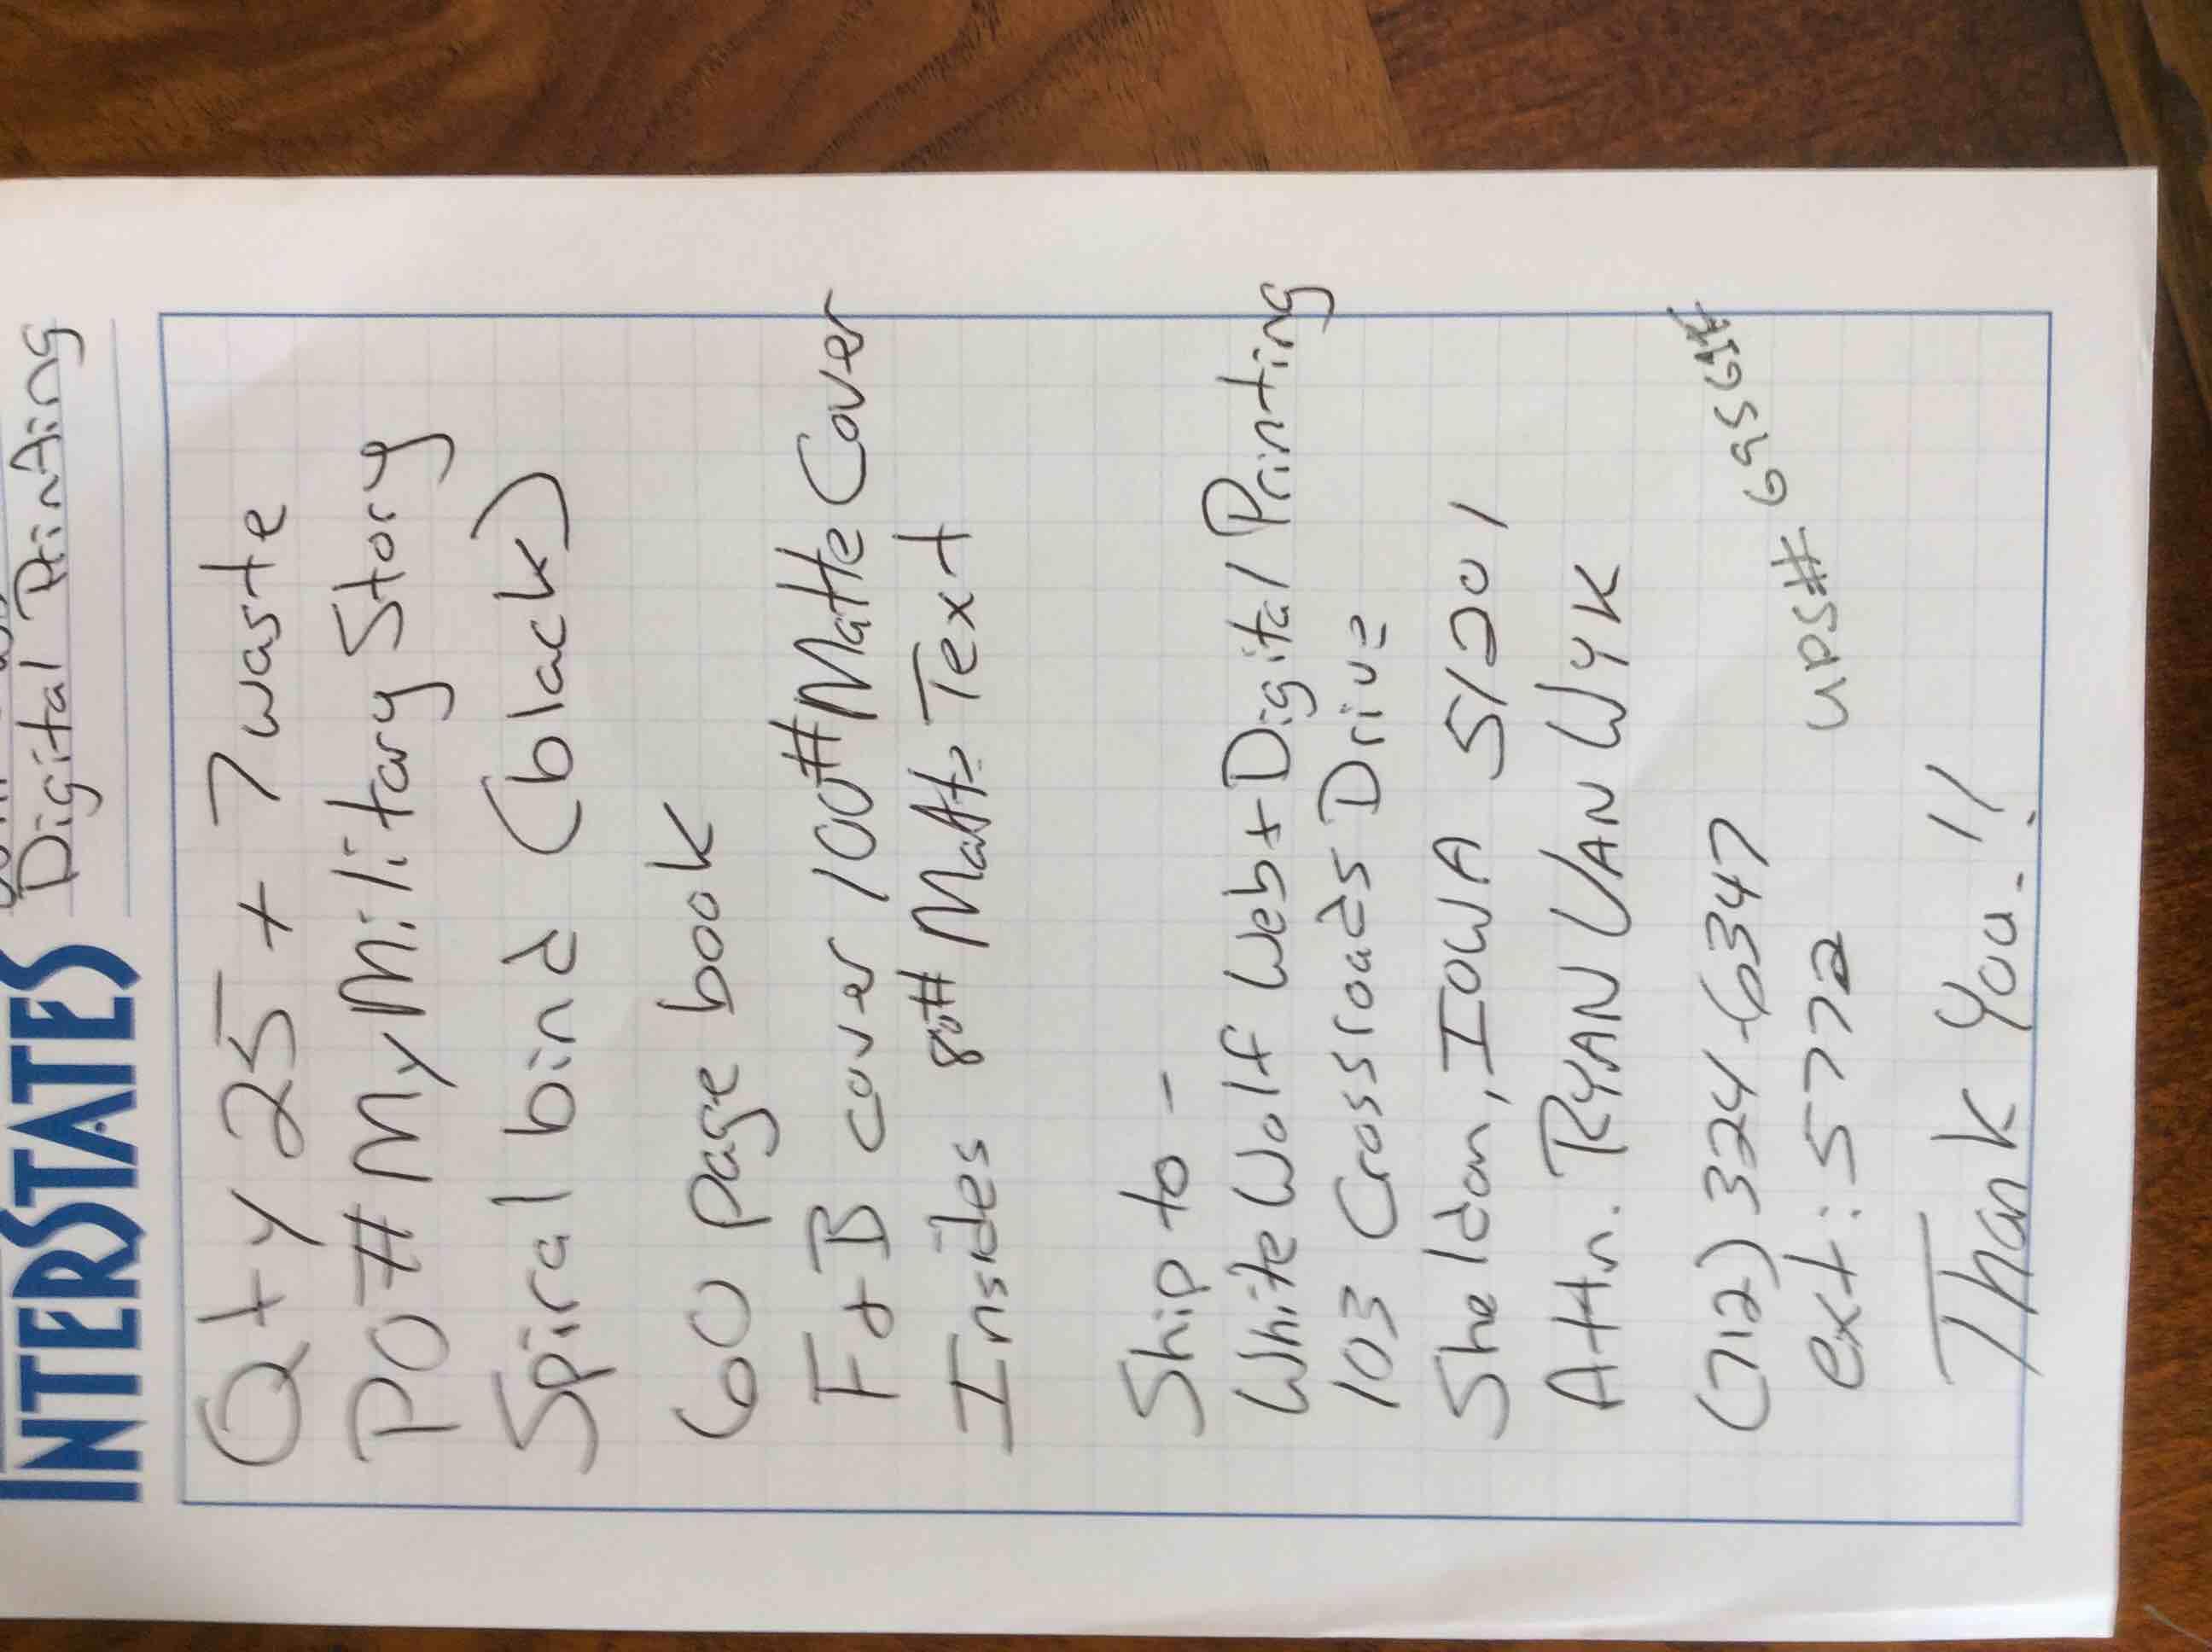 INTERSTATES
Digital Printing
Qty 25 + 7 waste
PO# My Military Story
Spiral bind (black)
60 page book
F+B cover 100# Matte Cover
Insides 80# Matte Text
Ship to -
White Wolf Web + Digital Printing
103 Crossroads Drive
Sheldon, IOWA 51201
Attn. RYAN VAN WYK
(712) 324-6347
ext: 5772
ups#
Thank You!!